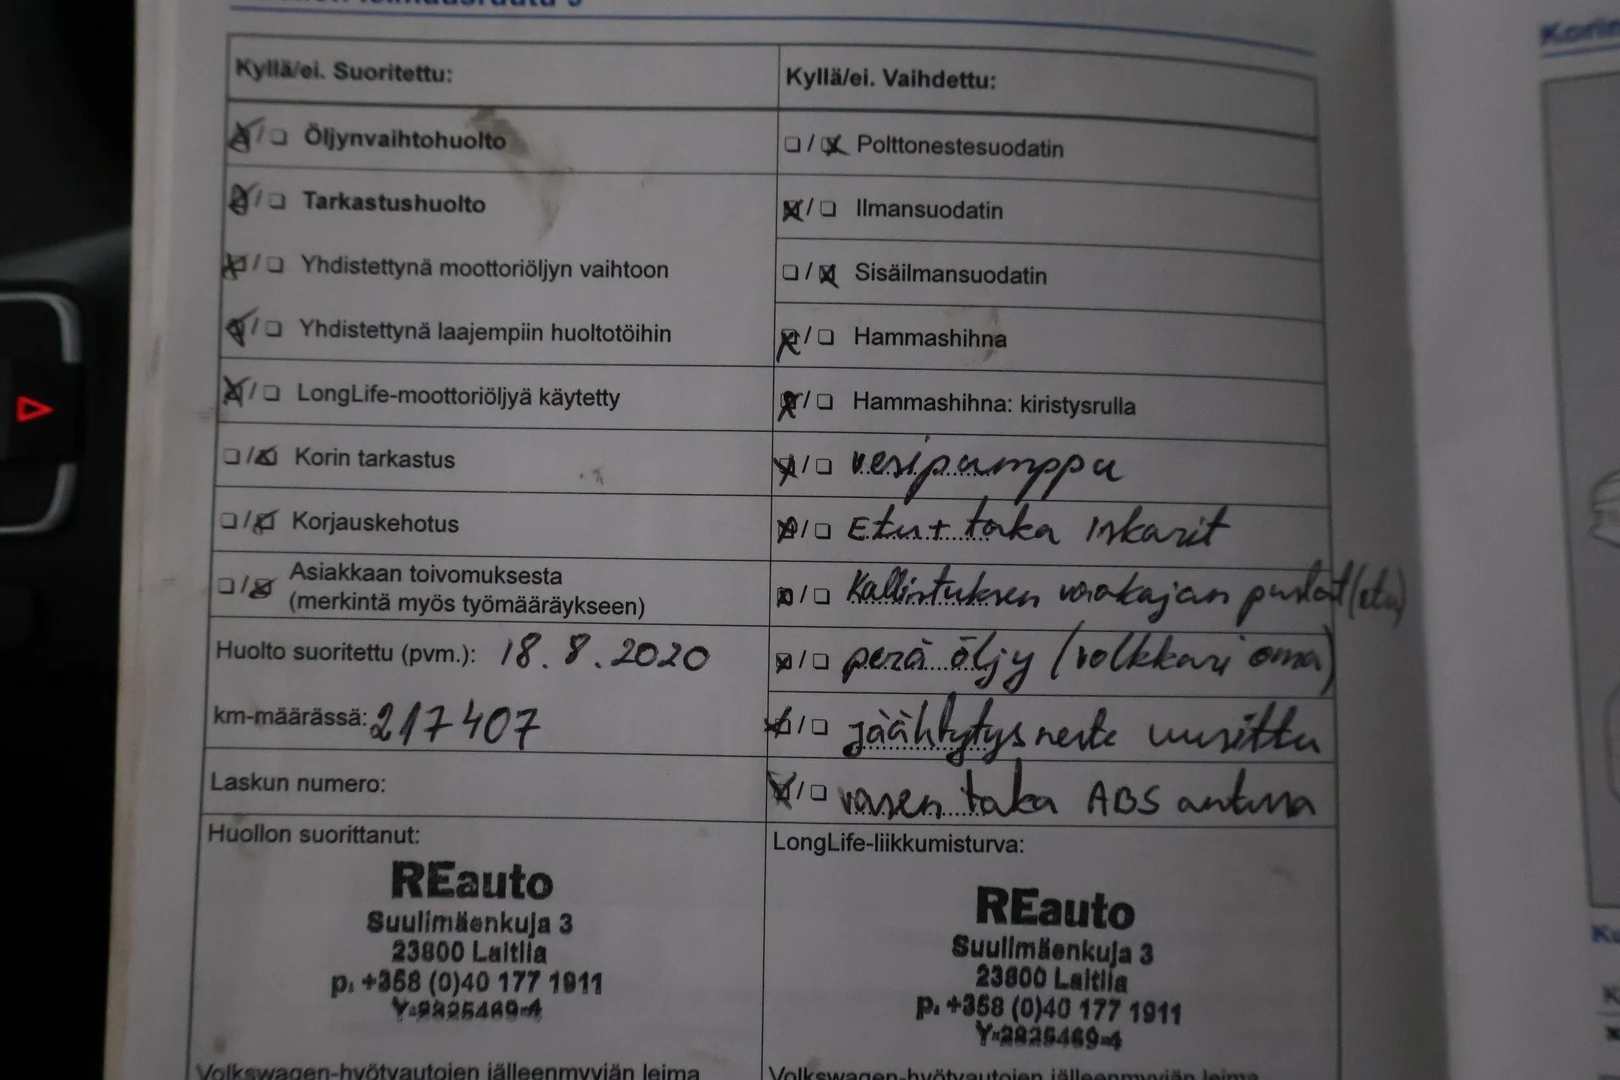 Kyllä/ei. Suoritettu:
☒/☐ Öljynvaihtohuolto
☒/☐ Tarkastushuolto
☒/☐ Yhdistettynä moottoriöljyn vaihtoon
☒/☐ Yhdistettynä laajempiin huoltotöihin
☒/☐ LongLife-moottoriöljyä käytetty
☐/☒ Korin tarkastus
☐/☒ Korjauskehotus
☐/☒ Asiakkaan toivomuksesta
(merkintä myös työmääräykseen)
Huolto suoritettu (pvm.): 18.8.2020
km-määrässä: 217407
Laskun numero:
Huollon suorittanut:
REauto
Suulimäenkuja 3
23800 Laitila
p. +358 (0)40 177 1911
Y-2825469-4
Volkswagen-hyötyautojen jälleenmyyjän leima
Kyllä/ei. Vaihdettu:
☐/☒ Polttonestesuodatin
☒/☐ Ilmansuodatin
☐/☒ Sisäilmansuodatin
☒/☐ Hammashihna
☒/☐ Hammashihna: kiristysrulla
☒/☐ vesipumppu
☒/☐ Etu + taka Iskarit
☒/☐ Kallistuksen vaakajan puslat (etu)
☒/☐ perä öljy (volkkari oma)
☒/☐ jäähtytysneste uusittu
☒/☐ vasen taka ABS anturi
LongLife-liikkumisturva:
REauto
Suulimäenkuja 3
23800 Laitila
p. +358 (0)40 177 1911
Y-2825469-4
Volkswagen-hyötyautojen jälleenmyyjän leima